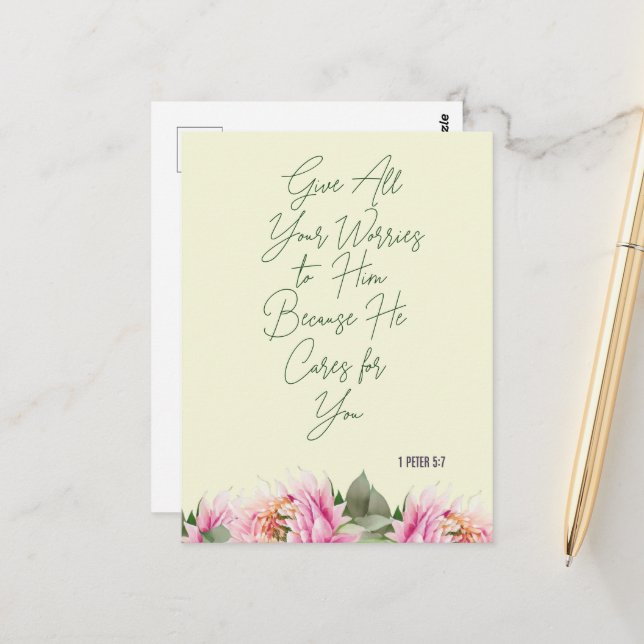 Give All
Your Worries
to Him
Because He
Cares for
You
1 PETER 5:7